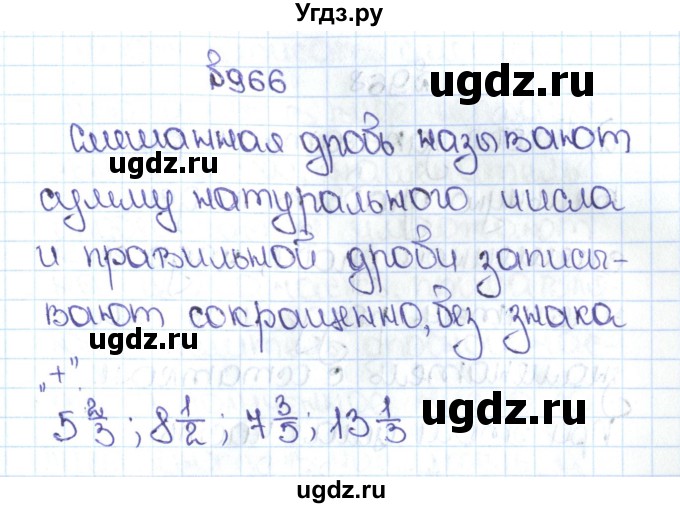 Угдз.ру
в966
ugdz.ru
Смешанная дробь называют
сумму натурального числа
ugdz.ru
и правильной дроби записы-
вают сокращенно, без знака
ugdz.ru
ugdz.ru
„+”.
5 2/3 ; 8 1/2 ; 7 3/5 ; 13 1/3
ugdz.ru
ugdz.ru